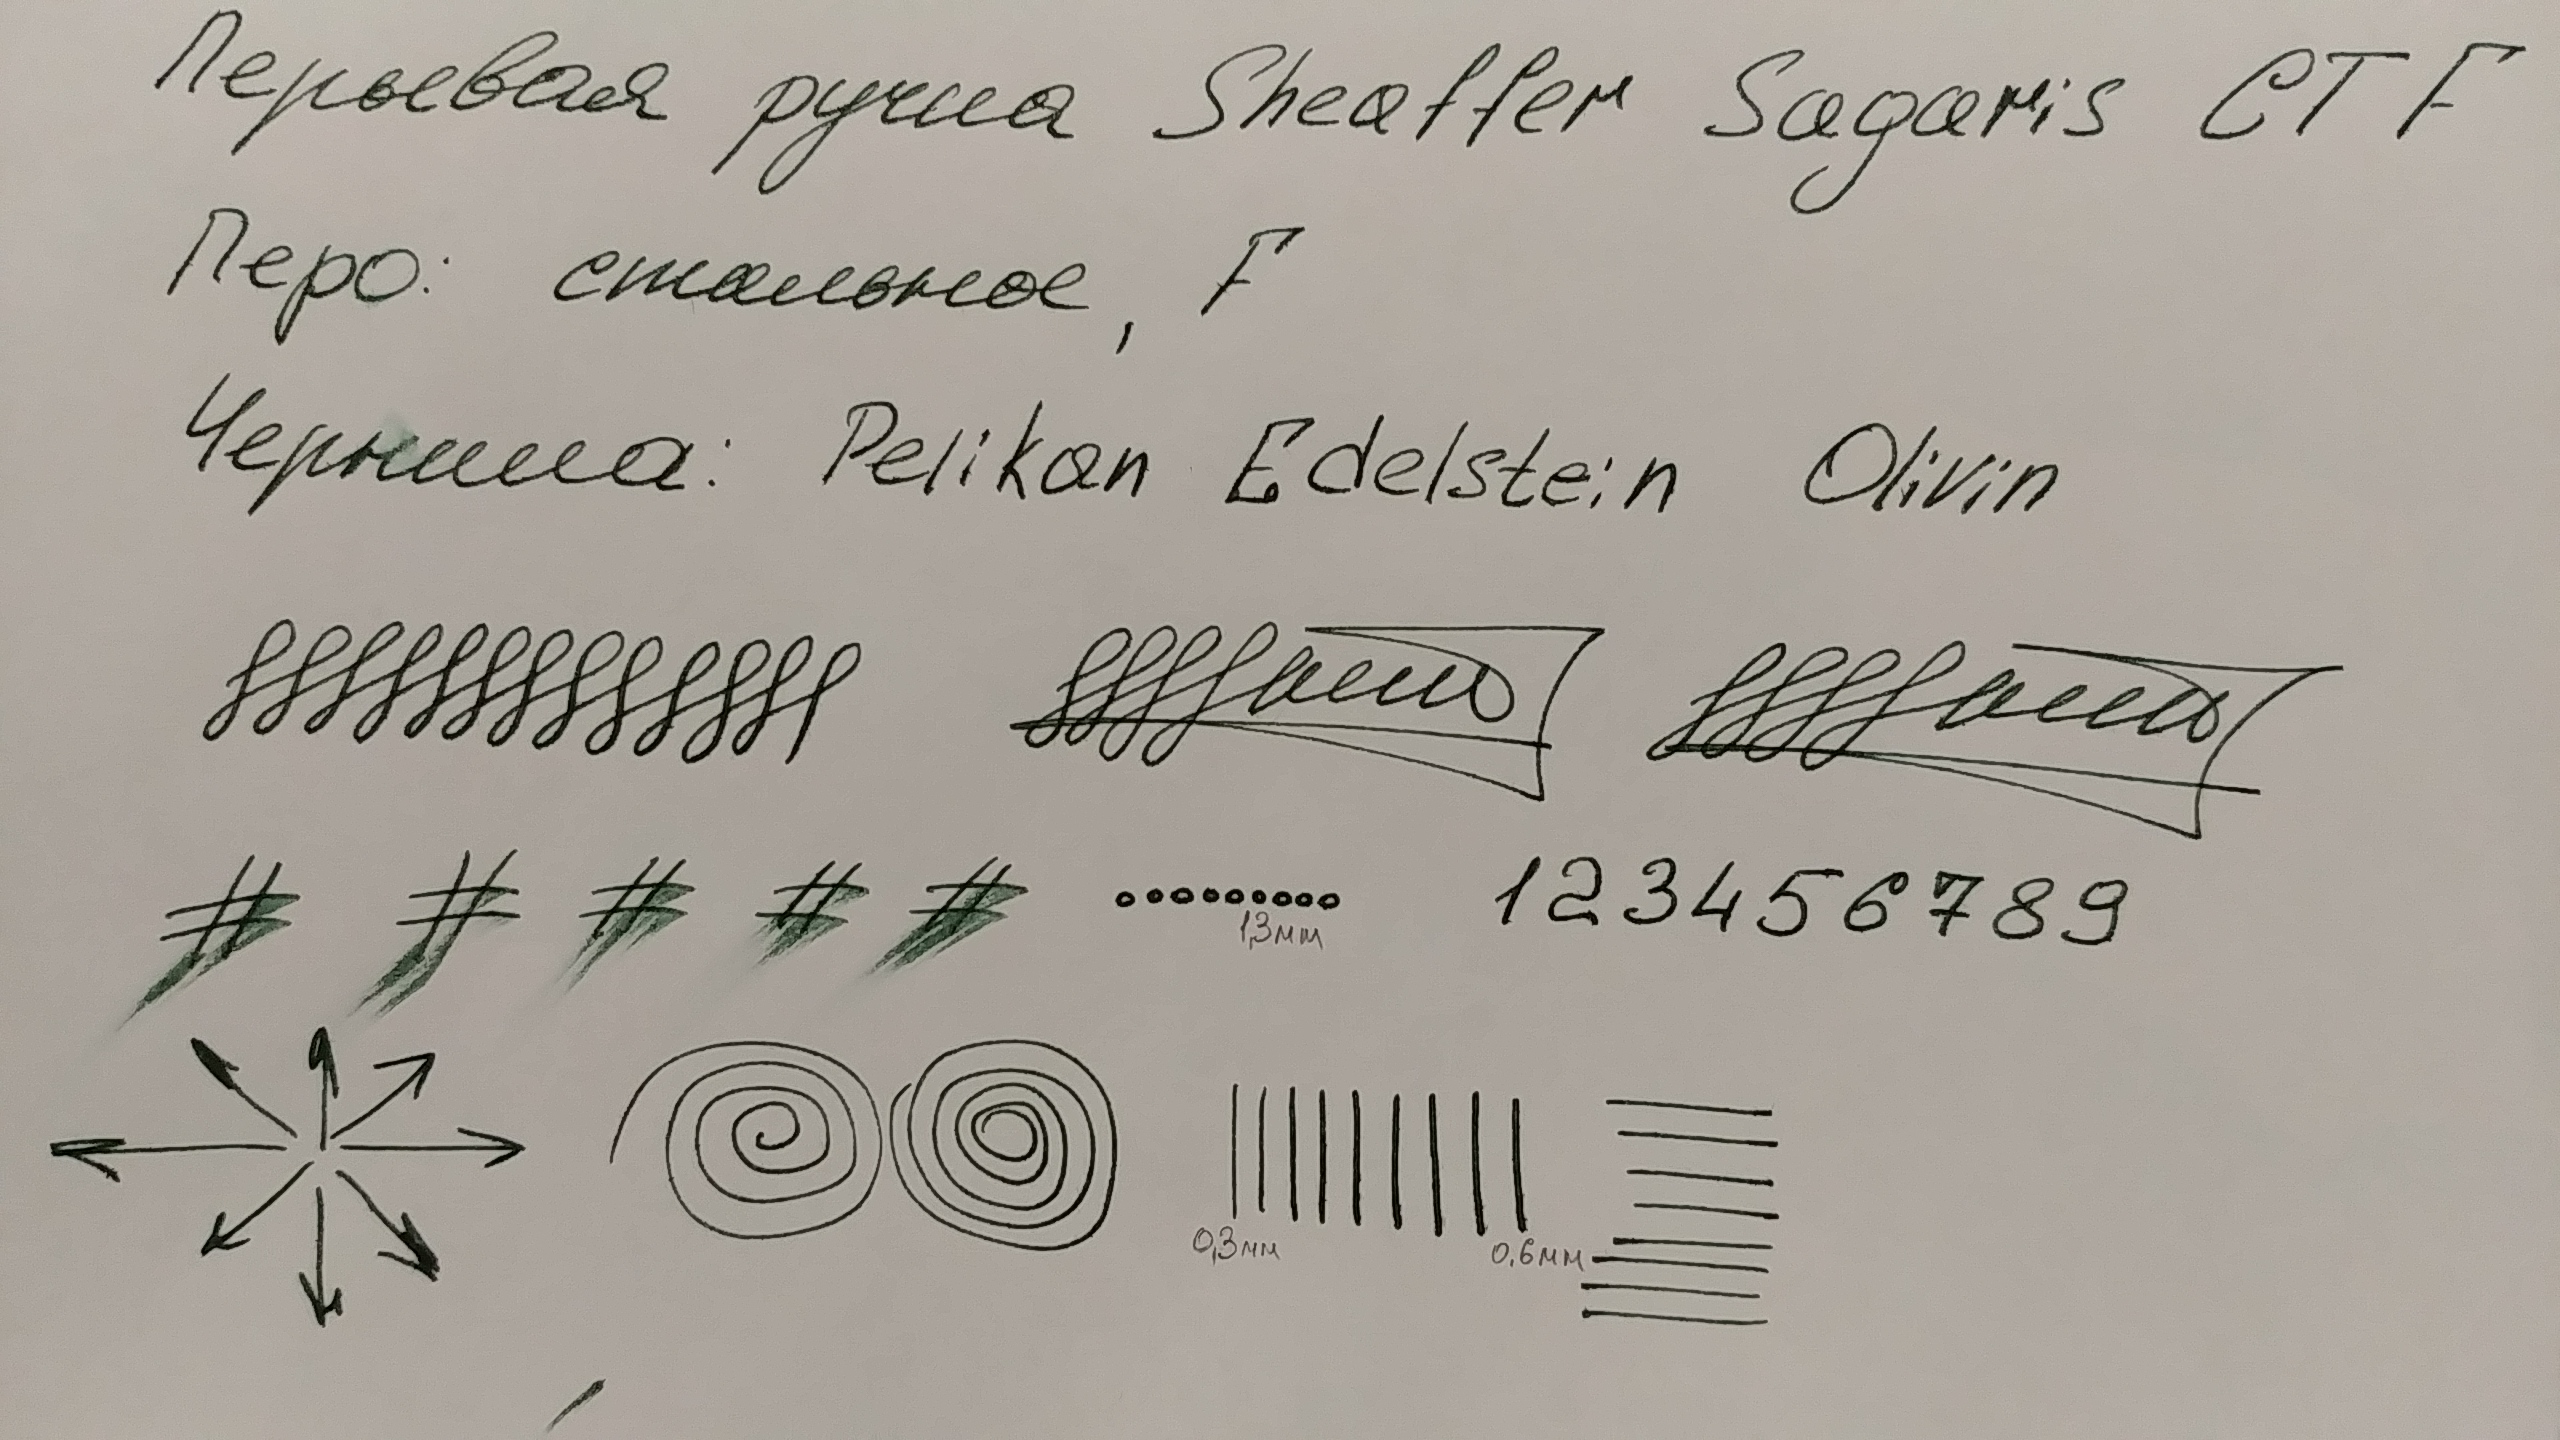 Перьевая ручка Sheaffer Sagaris CT F
Перо: стальное, F
Чернила: Pelikan Edelstein Olivin
# # # # # 1 2 3 4 5 6 7 8 9
1,3мм
0,3мм 0,6мм